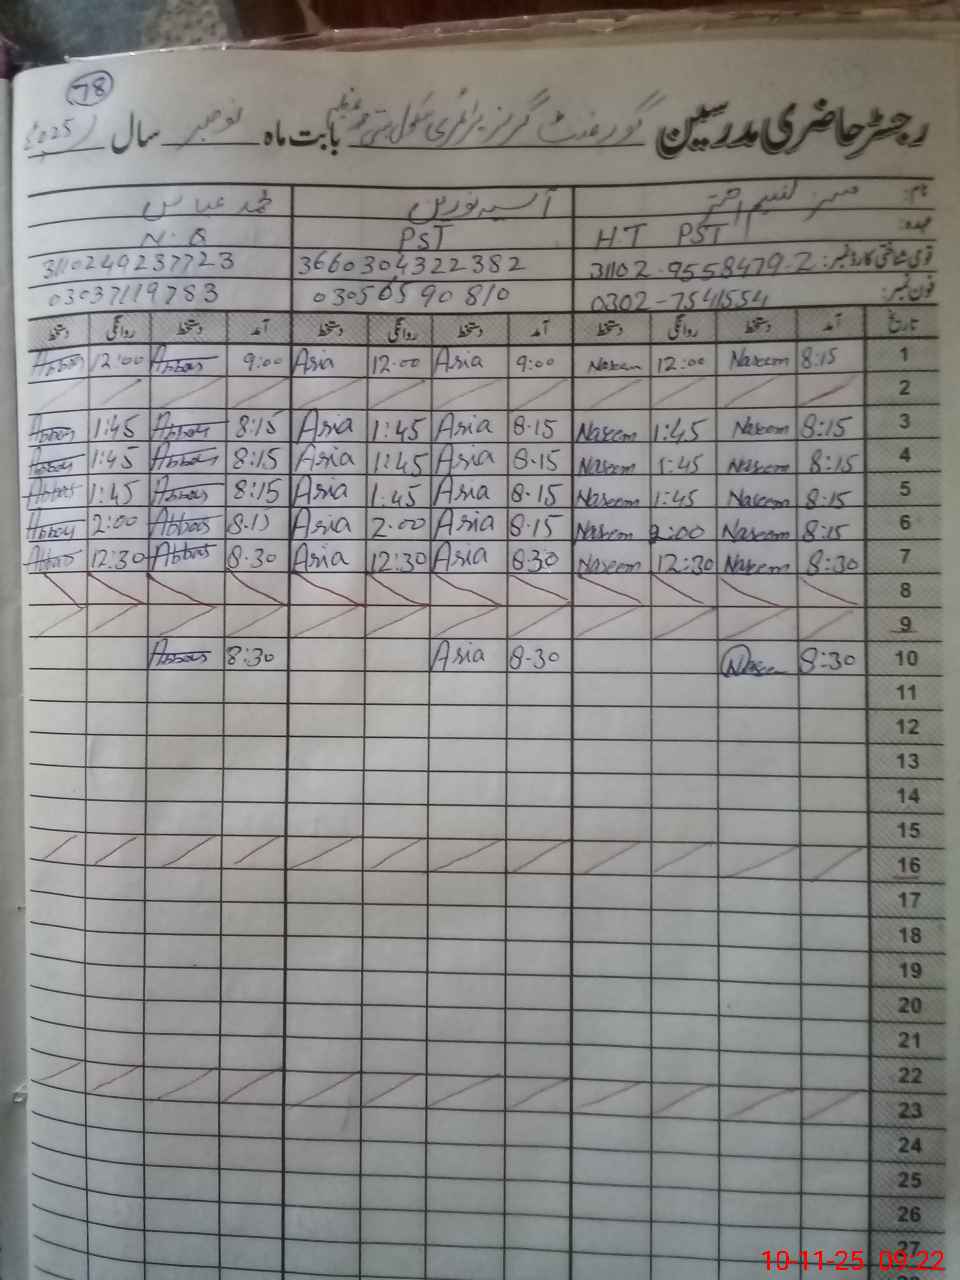 78
رجسٹر حاضری مدرسین گورنمنٹ گرلز پرائمری سکول بستی بابت ماہ نومبر سال 2025
نام: مسز نسیم اختر آسیہ نورین محمد عباس
عہدہ: H.T PST PST N.Q
قومی شناختی کارڈ نمبر: 31102-9558479-2 3660304322382 3110249237723
فون نمبر: 0302-7541554 03056590810 03037119783
تاریخ آمد دستخط روانگی دستخط آمد دستخط روانگی دستخط آمد دستخط روانگی دستخط
1 8:15 Naseem 12:00 Naseem 9:00 Asia 12:00 Asia 9:00 Abbas 12:00 Abbas
2
3 8:15 Naseem 1:45 Naseem 8:15 Asia 1:45 Asia 8:15 Abbas 1:45 Abbas
4 8:15 Naseem 1:45 Naseem 8:15 Asia 1:45 Asia 8:15 Abbas 1:45 Abbas
5 8:15 Naseem 1:45 Naseem 8:15 Asia 1:45 Asia 8:15 Abbas 1:45 Abbas
6 8:15 Naseem 2:00 Naseem 8:15 Asia 2:00 Asia 8:15 Abbas 2:00 Abbas
7 8:30 Naseem 12:30 Naseem 8:30 Asia 12:30 Asia 8:30 Abbas 12:30 Abbas
8
9
10 8:30 Naseem 8:30 Asia 8:30 Abbas
11
12
13
14
15
16
17
18
19
20
21
22
23
24
25
26
27
10-11-25 09:22